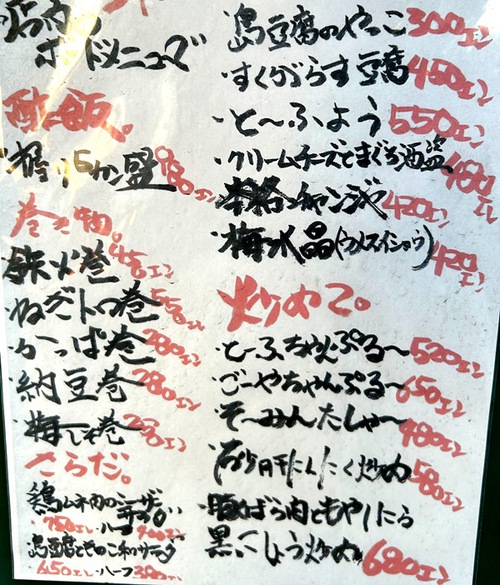 店内の
ボードメニューで
酢飯。
・握り5カン盛 980エン
巻き物。
・鉄火巻 450エン
・ねぎトロ巻 550エン
・かっぱ巻 280エン
・納豆巻 280エン
・梅しそ巻 280エン
さらだ。
・鶏ムネ肉のシーザーサラダ
・750エン・ハーフ 400エン
・島豆腐ときのこ和サラダ
・650エン・ハーフ 380エン
・島豆腐のやっこ 300エン
・すくがらす豆腐 450エン
・とーふよう 550エン
・クリームチーズとまぐろ酒盗 480エン
・本格チャンジャ 420エン
・梅水晶(ウメスイショウ) 420エン
炒めて。
・とーふちゃんぷるー 520エン
・ごーやちゃんぷるー 650エン
・そーみんたしゃー 480エン
・砂肝にんにく炒め 580エン
・豚ばら肉ともやしにら
黒こしょう炒め 680エン